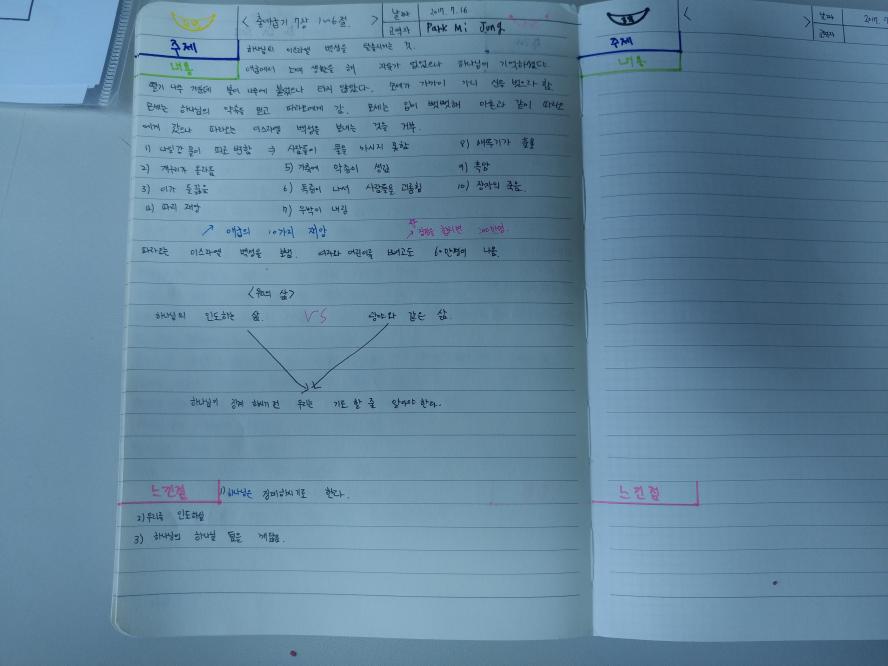 < 출애굽기 7장 1~6절. >
날짜 2017.7.16
고역자 Park Mi Jung
주제 하나님의 이스라엘 백성을 탈출시키는 것.
내용 애굽에서 노예 생활을 해 자유가 없었으나 하나님이 기억하셨다.
떨기 나무 가운데 불이 나무에 붙었으나 타지 않았다. 모세가 가까이 가니 신을 벗으라 함.
모세는 하나님의 약속을 믿고 파라오에게 감. 모세는 입이 뻣뻣해 아론과 같이 파라오
에게 갔으나 파라오는 이스라엘 백성을 보내는 것을 거부.
1) 나일강 물이 피로 변함 → 사람들이 물을 마시지 못함
2) 개구리가 올라옴
3) 이가 들끓음
4) 파리 재앙
5) 가축에 악종이 생김
6) 독종이 나서 사람들을 괴롭힘
7) 우박이 내림
8) 메뚜기가
9) 흑암
10) 장자의 죽음.
↗ 애굽의 10가지 재앙
합치면 200만명.
파라오는 이스라엘 백성을 보냄. 여자와 어린이를 빼고도 60만명이 나옴.
<우리의 삶>
하나님의 인도하는 삶. VS 광야와 같은 삶.
하나님이 하시기전 우리는 기도 할 줄 알아야 한다.
느낀점 1) 하나님은 한다.
2) 우리를 인도하심
3) 하나님의 하나님 됨을 깨달음.
< >
날짜 2017.7
고역자
주제
내용
느낀점